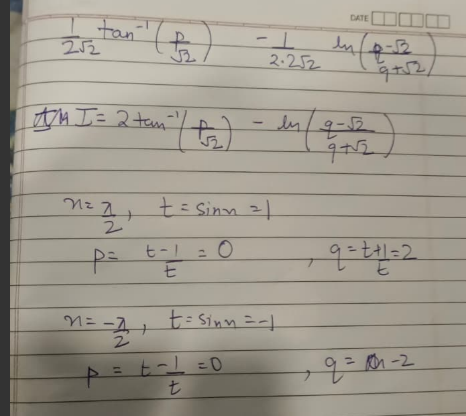 DATE
1/2√2 tan⁻¹(p/√2) - 1/2·2√2 ln(q-√2/q+√2)
I = 2 tan⁻¹(p/√2) - ln(q-√2/q+√2)
x = π/2, t = sinx = 1
p = t - 1/t = 0, q = t + 1/t = 2
x = -π/2, t = sinx = -1
p = t - 1/t = 0, q = -2